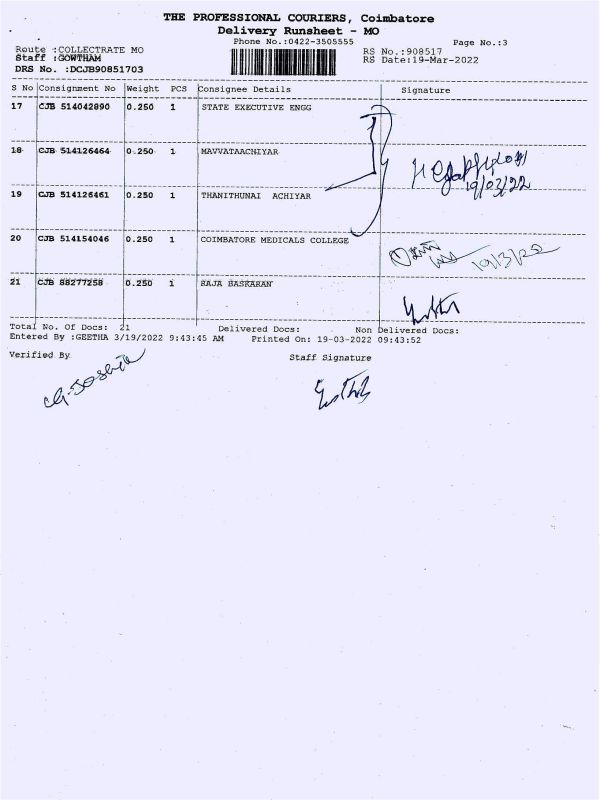 THE PROFESSIONAL COURIERS, Coimbatore
Delivery Runsheet - MO
Phone No.:0422-3505555
Page No.:3
Route :COLLECTRATE MO
RS No.:908517
Staff :GOWTHAM
RS Date:19-Mar-2022
DRS No. :DCJB90851703
S No Consignment No Weight PCS Consignee Details Signature
17 CJB 514042890 0.250 1 STATE EXECUTIVE ENGG
18 CJB 514126464 0.250 1 MAVVATAACHIYAR
19/03/22
19 CJB 514126461 0.250 1 THANITHUNAI ACHIYAR
20 CJB 514154046 0.250 1 COIMBATORE MEDICALS COLLEGE
19/3/22
21 CJB 88277258 0.250 1 RAJA BASKARAN
Total No. Of Docs: 21 Delivered Docs: Non Delivered Docs:
Entered By :GEETHA 3/19/2022 9:43:45 AM Printed On: 19-03-2022 09:43:52
Verified By Staff Signature